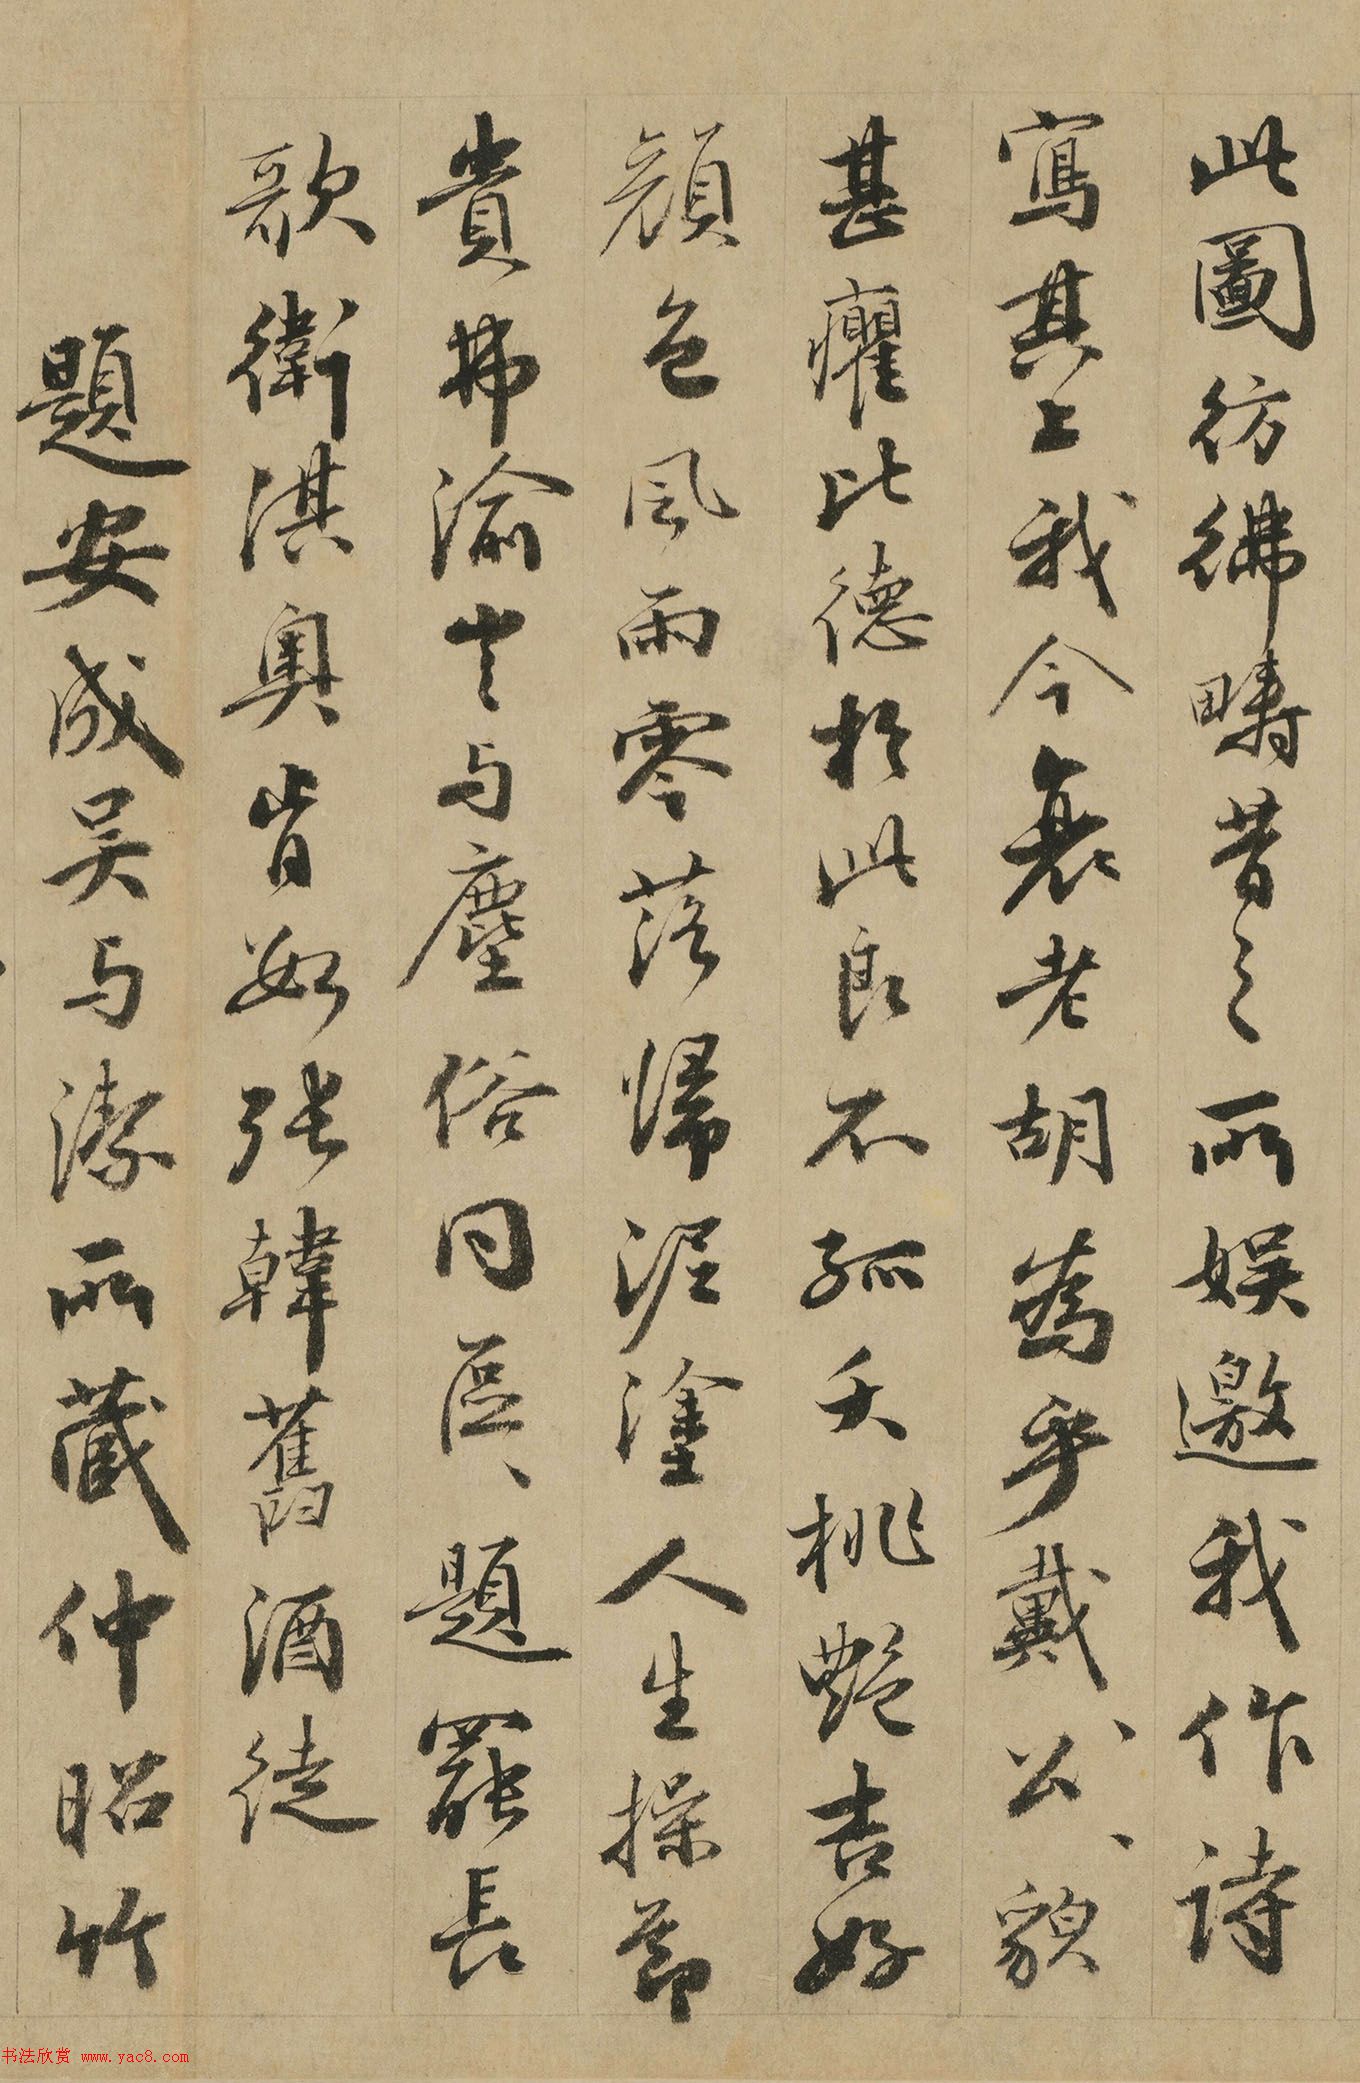 此圖彷彿疇昔之所娛邀我作詩
寫其上我今衰老胡為乎戴公公貌
甚癯比德於此良不孤夭桃艷杏好
顏色風雨零落歸泥塗人生操節
貴弗渝安與塵俗同區區題罷長
歌衛淇奧肯數張韓舊酒徒
題安成吳與潔所藏仲昭竹
书法欣赏 www.yac8.com